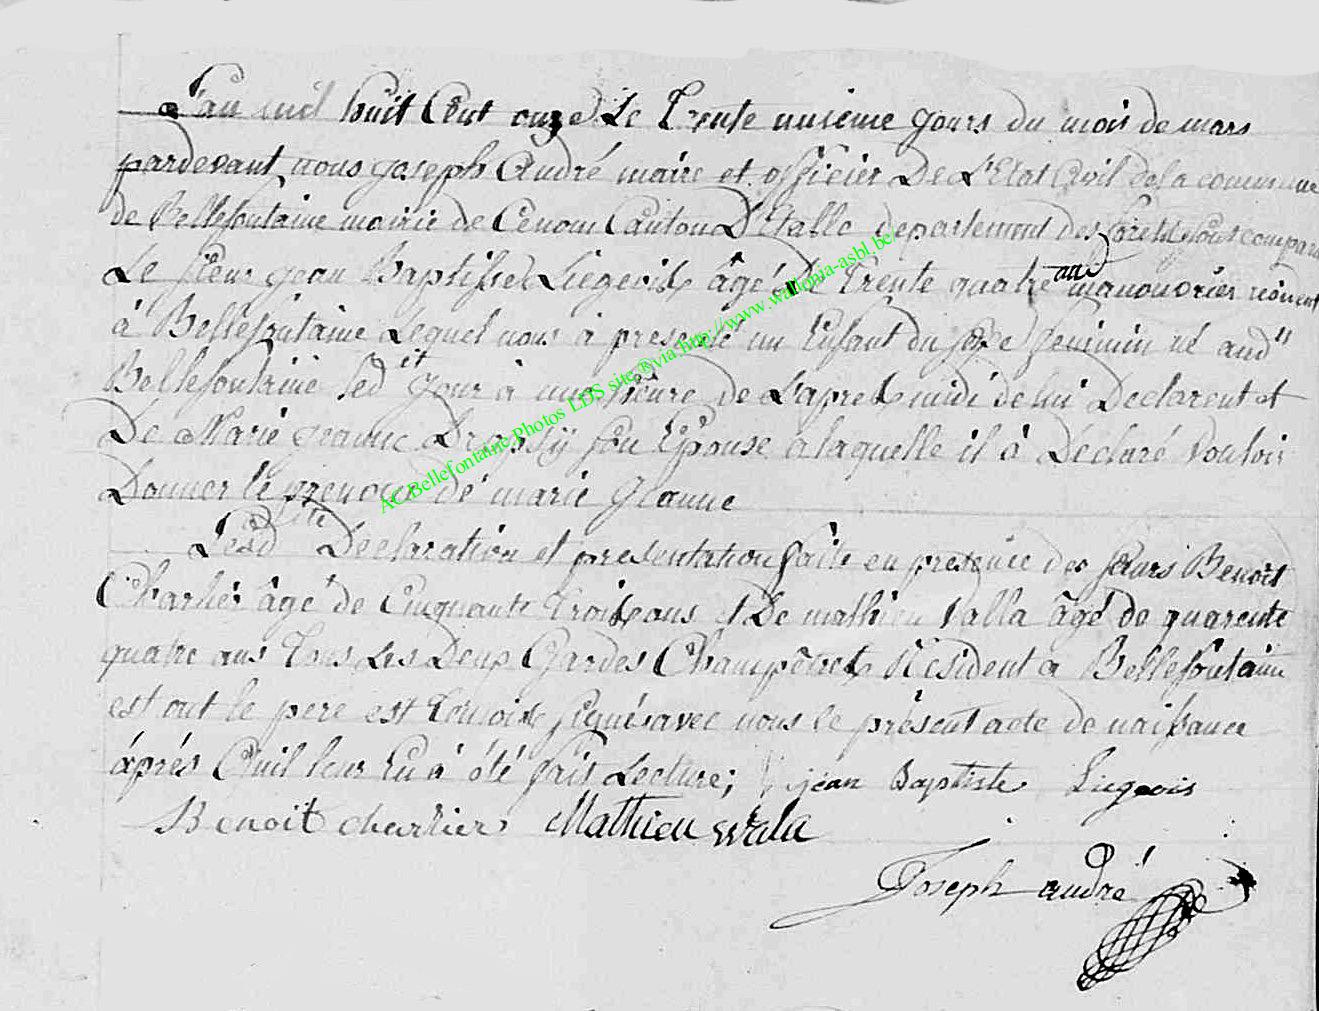 L'an mil huit Cent onze Le Trente unieme jours du mois de mars
pardevant nous joseph André maire et officier De L'Etat Civil dela commune
de Bellefontaine mairie de Canton D'Etalle departement des forets sont comparu
Le sieur jean Baptiste Liegeois âgé De Trente quatre ans manouvrier résident
à Bellefontaine Lequel nous à presenté un Enfant du sexe feminin né audit
Bellefontaine led it jour à une heure de L'apres midi de lui Declarent et
De Marie jeanne son Epouse a laquelle il à Déclaré vouloir
Donner le prenom de marie jeanne
Lesd ite Déclaration et presentation faite en presence des sieurs Benoit
Charlier âgé de Cinquante Trois ans et De mathieu Valla âgé de quarente
quatre ans Tous Les Deux Gardes Champêtres Résident a Bellefontaine
est ont le pere est Temoins signés avec nous le présent acte de naissance
áprés Quil leur En à été fait Lecture; jean Baptiste Liegeois
Benoit charlier Mathieu
Joseph andré
AC Bellefontaine Photos LDS site ®via http://www.wallonia-asbl.be/